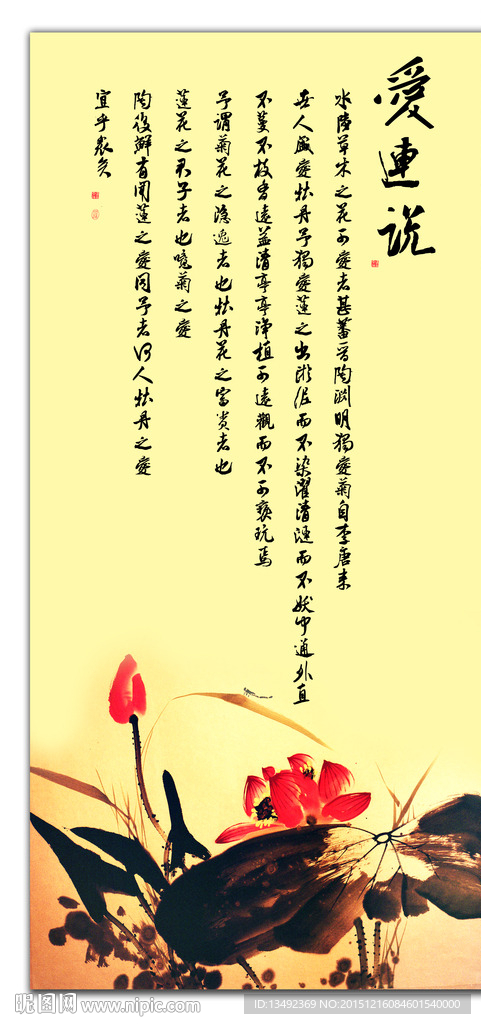 愛連説
水陸草木之花可愛者甚蕃晉陶淵明獨愛菊自李唐來
世人盛愛牡丹予獨愛蓮之出淤泥而不染濯清漣而不妖中通外直
不蔓不枝香遠益清亭亭淨植可遠觀而不可褻玩焉
予謂菊花之隱逸者也牡丹花之富貴者也
蓮花之君子者也噫菊之愛
陶後鮮有聞蓮之愛同予者何人牡丹之愛
宜乎衆矣
昵图网 www.nipic.com
ID:13492369 NO:20151216084601540000